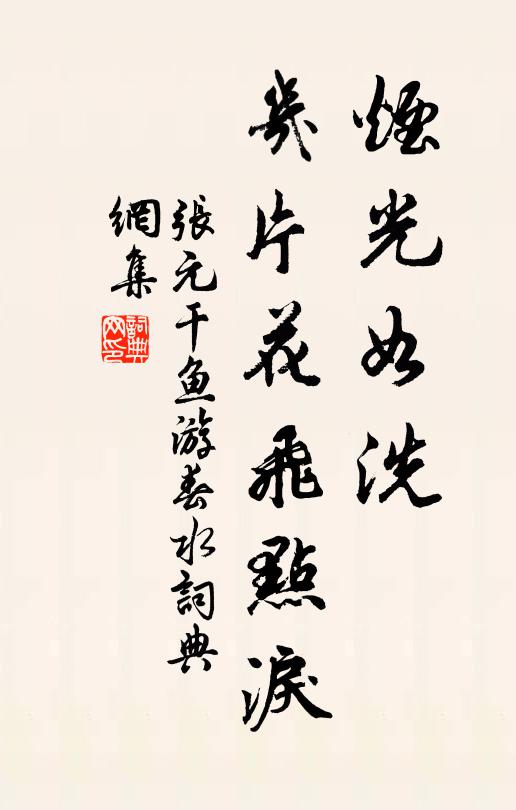 煙光如洗
幾片花飛點淚
張元干魚游春水詞典
網集
詞典
网印